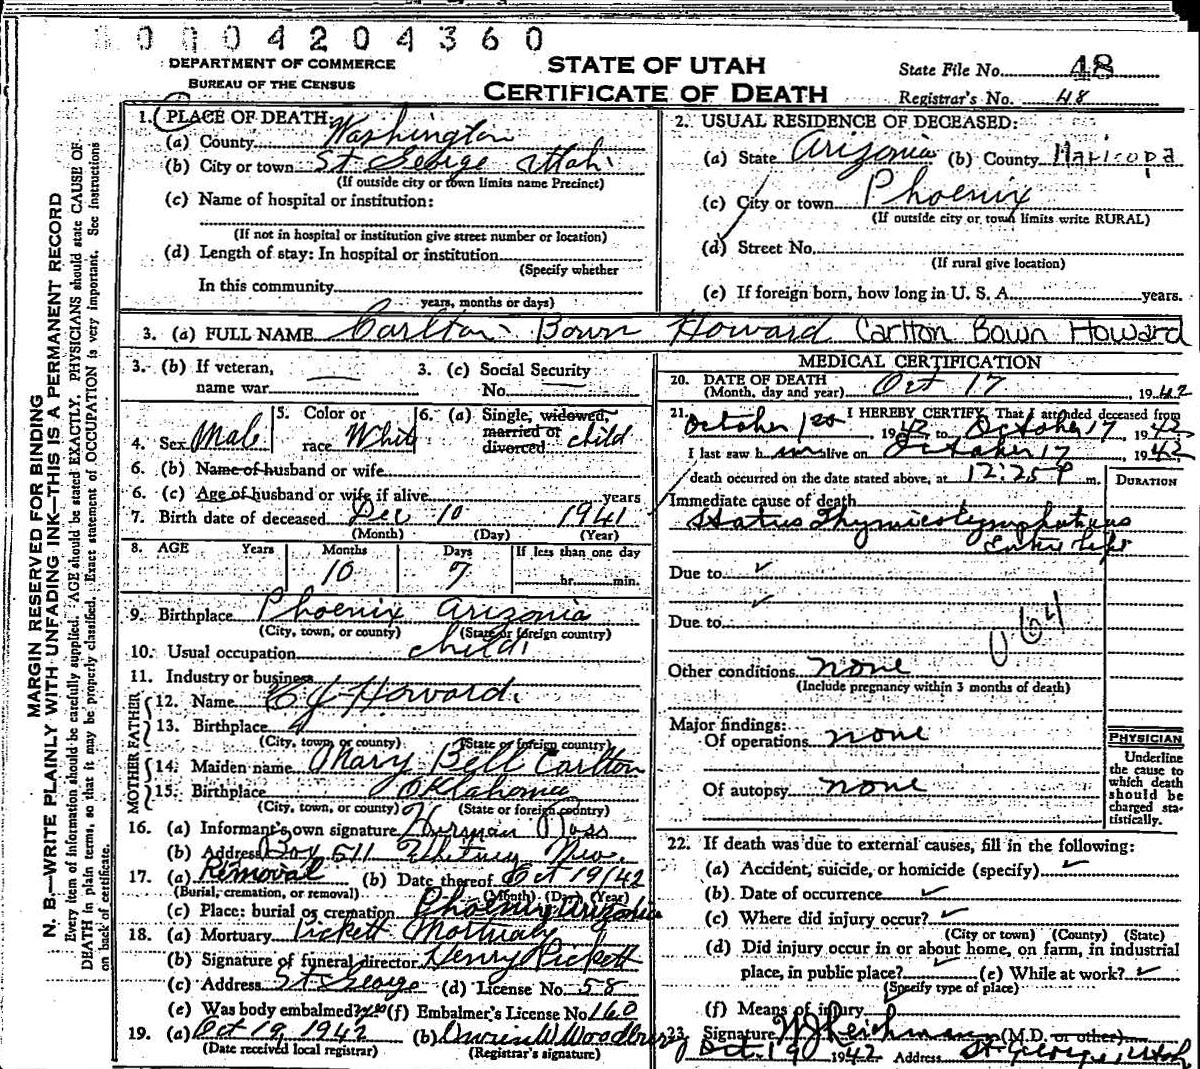 0 1 0 4 2 0 4 3 6 0
DEPARTMENT OF COMMERCE
BUREAU OF THE CENSUS
STATE OF UTAH
CERTIFICATE OF DEATH
State File No. 48
Registrar's No. 48
MARGIN RESERVED FOR BINDING
N. B.—WRITE PLAINLY WITH UNFADING INK—THIS IS A PERMANENT RECORD
Every item of information should be carefully supplied. AGE should be stated EXACTLY. PHYSICIANS should state CAUSE OF
DEATH in plain terms, so that it may be properly classified. Exact statement of OCCUPATION is very important. See instructions
on back of certificate.
1. PLACE OF DEATH:
(a) County Washington
(b) City or town St George Utah
(If outside city or town limits name Precinct)
(c) Name of hospital or institution:
(If not in hospital or institution give street number or location)
(d) Length of stay: In hospital or institution
(Specify whether
In this community
years, months or days)
2. USUAL RESIDENCE OF DECEASED:
(a) State Arizonia (b) County Maricopa
(c) City or town Phoenix
(If outside city or town limits write RURAL)
(d) Street No.
(If rural give location)
(e) If foreign born, how long in U. S. A. years.
3. (a) FULL NAME Carlton Bown Howard Carlton Bown Howard
3. (b) If veteran, name war
3. (c) Social Security No.
4. Sex Male 5. Color or race White 6. (a) Single, widowed, married or divorced. child
6. (b) Name of husband or wife
6. (c) Age of husband or wife if alive years
7. Birth date of deceased Dec 10 1941
(Month) (Day) (Year)
8. AGE Years Months Days If less than one day
10 7 hr. min.
9. Birthplace Phoenix Arizonia
(City, town, or county) (State or foreign country)
10. Usual occupation child
11. Industry or business
FATHER
12. Name C J Howard
13. Birthplace
(City, town, or county) (State or foreign country)
MOTHER
14. Maiden name Mary Bell Carlton
15. Birthplace Oklahoma
(City, town, or county) (State or foreign country)
16. (a) Informant's own signature Herman Ross
(b) Address Box 511 Nev.
17. (a) Removal (b) Date thereof Oct 19/42
(Burial, cremation, or removal) (Month) (Day) (Year)
(c) Place: burial or cremation Phoenix Arizonia
18. (a) Mortuary Pickett Mortuary
(b) Signature of funeral director Henry Pickett
(c) Address St George (d) License No. 58
(e) Was body embalmed? yes (f) Embalmer's License No 160
19. (a) Oct 19, 1942 (b) W Woodbury
(Date received local registrar) (Registrar's signature)
MEDICAL CERTIFICATION
20. DATE OF DEATH
(Month, day and year) Oct 17, 1942
21. I HEREBY CERTIFY, That I attended deceased from
October 1st, 1942 to October 17, 1942
I last saw him alive on October 17, 1942,
death occurred on the date stated above, at 12:25 P m.
DURATION
Immediate cause of death
Status Thymicolymphaticus
Entire life
Due to ✓
Due to ✓
064
Other conditions none
(Include pregnancy within 3 months of death)
Major findings:
Of operations none
Of autopsy none
PHYSICIAN
Underline
the cause to
which death
should be
charged sta-
tistically.
22. If death was due to external causes, fill in the following:
(a) Accident, suicide, or homicide (specify) ✓
(b) Date of occurrence ✓
(c) Where did injury occur? ✓
(City or town) (County) (State)
(d) Did injury occur in or about home, on farm, in industrial
place, in public place? ✓ (e) While at work? ✓
(Specify type of place)
(f) Means of injury
23. Signature W J Reichmann (M.D. or other)
Oct. 19 1942 Address St. George, Utah